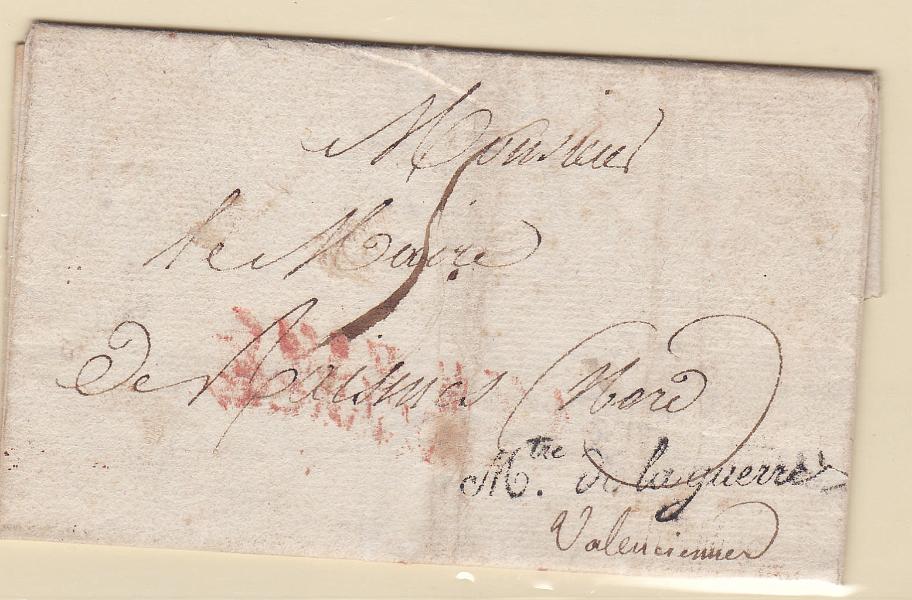 Monsieur
le Maire
5
De Raismes (Nord)
Mtre. de la guerre
Valenciennes